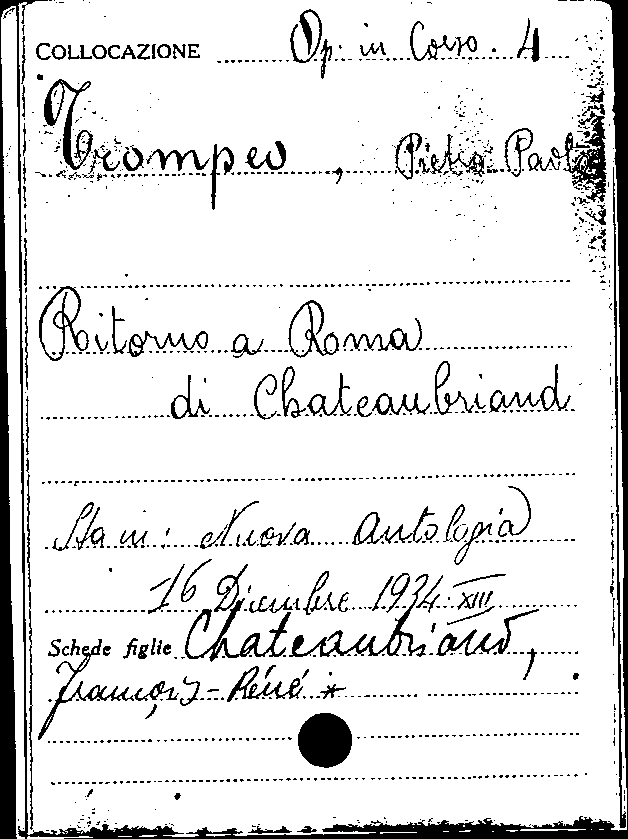 COLLOCAZIONE Op. in Corso. 4
Trompeo, Pietro Paolo
Ritorno a Roma
di Chateaubriand
Sta in: Nuova Antologia
16 Dicembre 1934. XIII
Schede figlie Chateaubriand,
François-Réné *